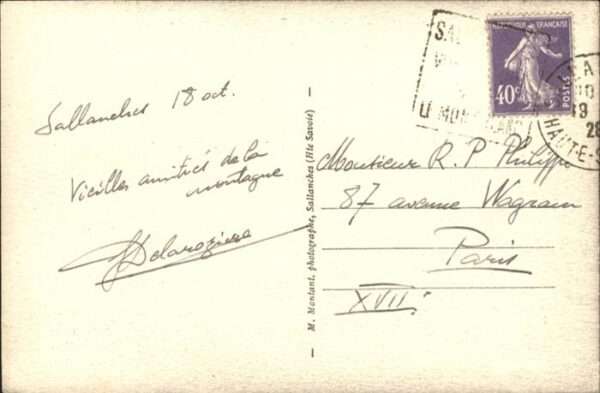 Sallanches 18 oct.
Vieilles amitiés de la
montagne
Delarozière
M. Montant, photographe, Sallanches (Hte Savoie)
REPUBLIQUE FRANÇAISE
40c
POSTES
SAL
LE MONT BLANC
HAUTE-S
Monsieur R. P. Philippe
87 avenue Wagram
Paris
XVII